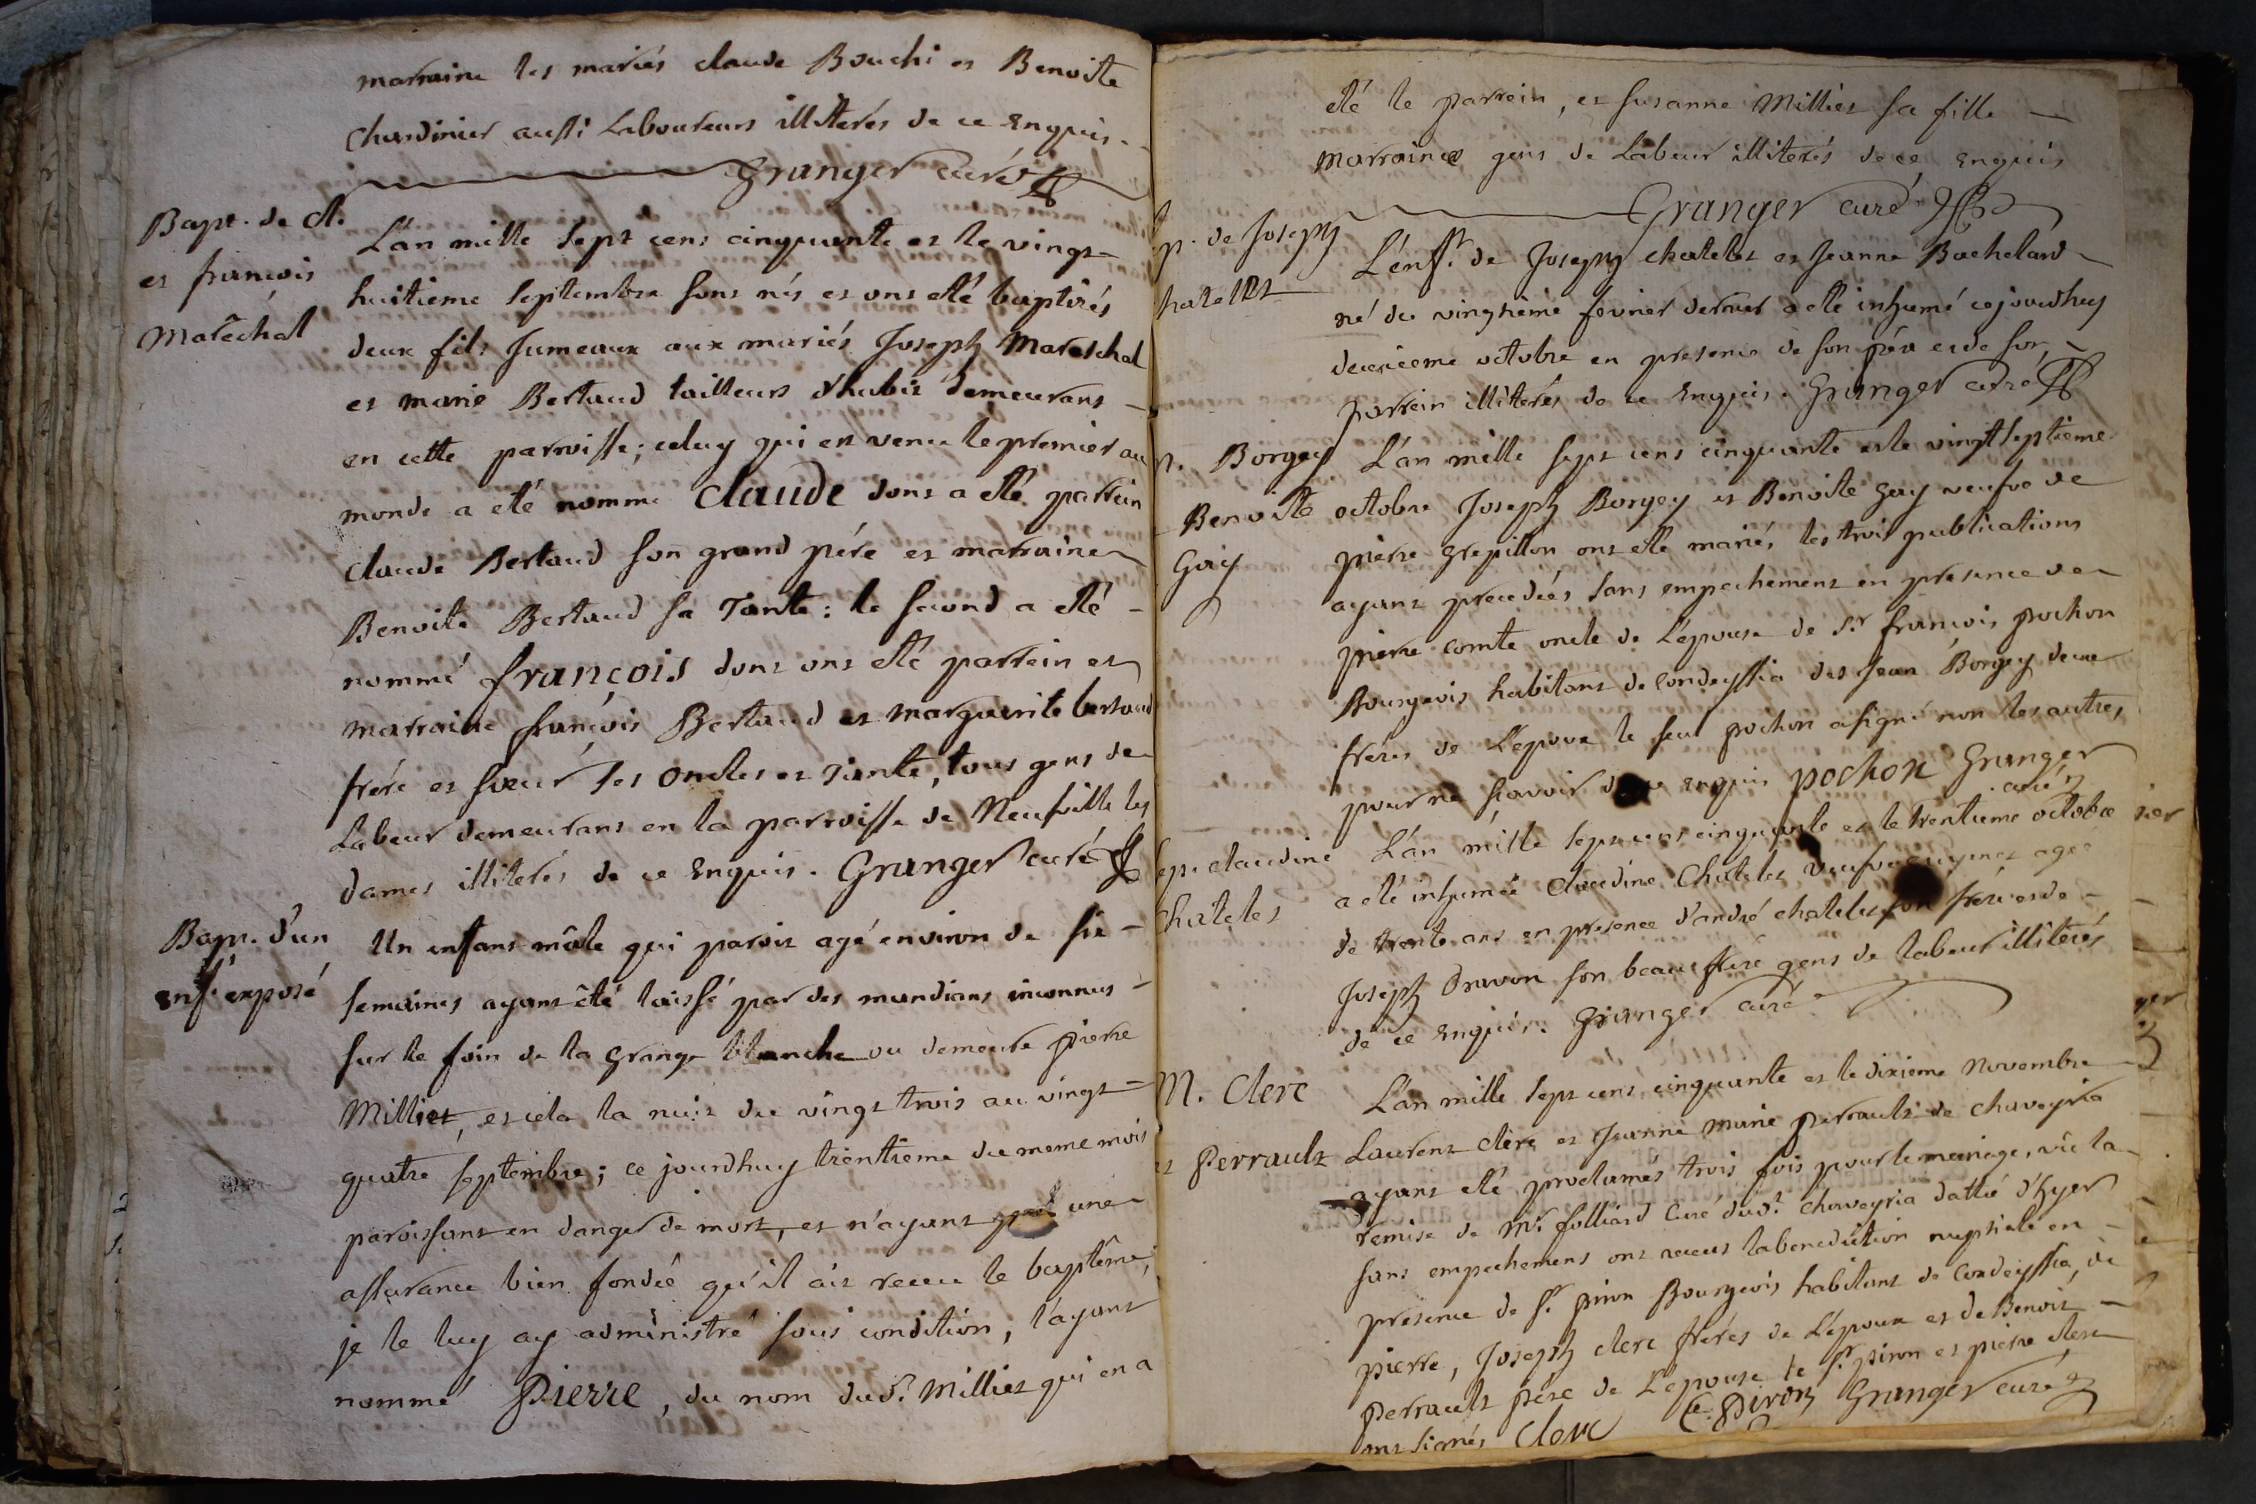 marraine les mariés claude Bouchi et Benoite
chardinier aussi Laboureurs illiterés de ce Enquis.
Granger curé
Bapt. de cl.
et françois
Maréchal
L'an mille sept cens cinquante et le vingt-
huitieme septembre sont nés et ont eté baptisés
deux fils Jumeaux aux mariés Joseph Mareschal
et marie Bertaud tailleurs d'habit demeurans
en cette parroisse; celuy qui est venu le premier au
monde a eté nommé Claude dont a eté parrein
claude Bertaud son grand pére et marraine
Benoite Bertaud sa Tante: le second a eté
nommé françois dont ont eté parrein et
marraine françois Bertaud et marguerite bertaud
frére et sœur ses oncles et tante, tous gens de
Labeur demeurans en la parroisse de Neufville les
dames illiterés de ce Enquis. Granger curé
Bapt. d'un
enf. exposé
Un enfant mâle qui paroit agé environ de six
semaines ayant été laissé par des mandians inconnus
sur le foin de la grange blanche ou demeure pierre
Milliet, et cela la nuit du vingt trois au vingt
quatre septembre; ce jourdhuy trentieme du meme mois
paroissant en danger de mort, et n'ayant une
assurance bien fondée qu'il ait receu le baptême;
je le luy ay administré sous condition, l'ayant
nommé Pierre, du nom dud. Milliet qui en a
eté le parrein, et susanne Milliet sa fille
marraine gens de Labeur illiterés de ce enquis
Granger curé
p. de Joseph
hatelet
L'enf. de Joseph chatelet et Jeanne Bachelard
né du vingtieme fevrier dernier a eté inhumé cejourdhuy
deuxieme octobre en presence de son pére et de son
parrein illiterés de ce Enquis. Granger curé
Borgey
Benoite
Gay
L'an mille sept cens cinquante et le vingt septieme
octobre Joseph Borgey et Benoite Gay veufve de
pierre grepillon ont eté mariés, les trois publications
ayant precedées sans empechement en presence de
pierre comte oncle de L'epouse de sr. françois pochon
Bourgeois habitant de Condeyssia des Jean Borgey deux
fréres de L'epoux le seul pochon a signé non les autres
pour ne sçavoir de ce enquis pochon Granger
curé
ep. claudine
Chatelet
L'an mille sept cens cinquante et le trentieme octobre
a eté inhumée Claudine Chatelet veufve agée
de trente ans en presence d'andré chatelet son frére et de
Joseph Dravon son beaufrére gens de labeur illiterés
de ce Enquis. Granger curé
M. Clerc
et Perrault
L'an mille sept cens cinquante et le dixieme Novembre
Laurent clerc et Jeanne Marie perrault de chaveyria
ayant eté proclamés trois fois pour le mariage, vû la
remise de Mr. folliard Curé dud. chaveyria dattée d'hyer
sans empechement ont receus la benediction nuptiale en
presence de sr. piron Bourgeois habitant de Condeyssia, de
pierre, Joseph clerc fréres de L'epoux et de Benoit
perrault pére de L'epouse le sr. piron et pierre clerc
ont signés Clerc C. Piron Granger curé